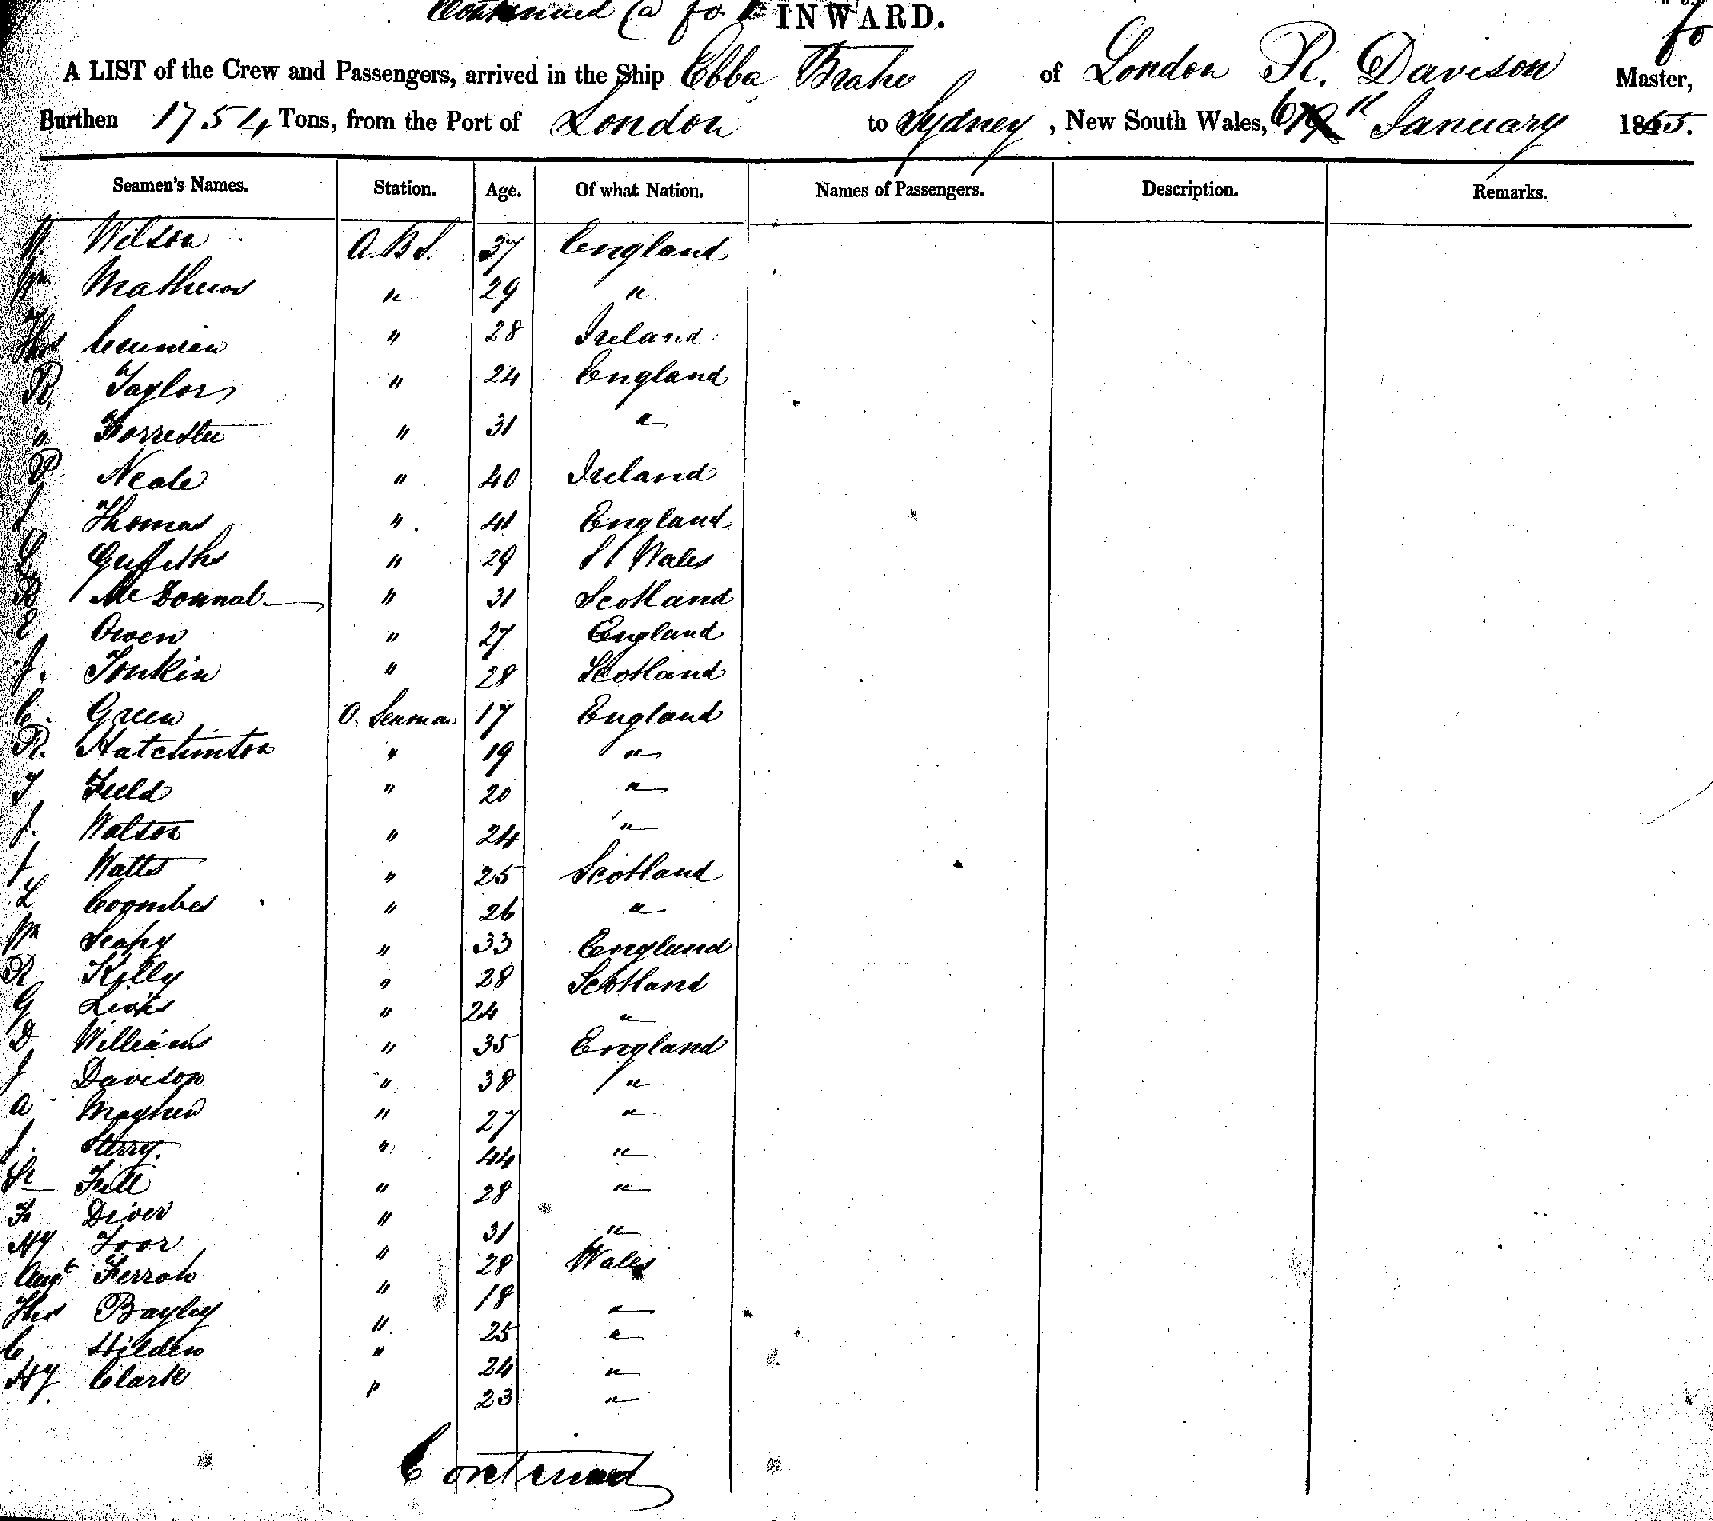 Continued
INWARD.
A LIST of the Crew and Passengers, arrived in the Ship Ebba Brahe of London R. Davison Master,
Burthen 1754 Tons, from the Port of London to Sydney, New South Wales, January 1865.
Seamen's Names. Station. Age. Of what Nation. Names of Passengers. Description. Remarks.
W Wilson A.B.S. 37 England
Wm Mathews " 29 "
Thos " 28 Ireland
R Taylor " 24 England
" Forrester " 31 "
P Neale " 40 Ireland
Thomas " 41 England
Griffiths " 29 Wales
McDonnal " 31 Scotland
Owen " 27 England
J. Tonkin " 28 Scotland
C. Green O. Seaman 17 England
R. Hatchinton " 19 "
T Field " 20 "
J. Watson " 24 "
J Watts " 25 Scotland
L Coombes " 26 "
Wm Seapy " 33 England
R Kelly " 28 Scotland
G " 24 "
D Williams " 35 England
J Davison " 38 "
A Mayhew " 27 "
J. Sterry. " 44 "
" 28 "
F Diver " 31 "
Hy Toor " 28 Wales
Augt Ferroh " 18 "
Thos Bayley " 25 "
C. Hilden " 24 "
Hy Clark " 23 "
Continued